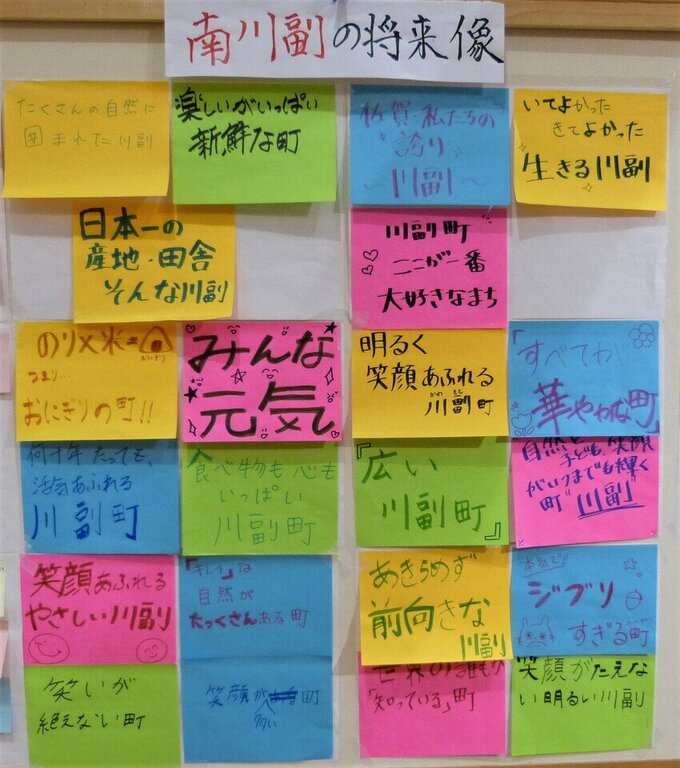 南川副の将来像
たくさんの自然に
囲まれた川副
楽しいがいっぱい
新鮮な町
佐賀・私たちの
誇り
~川副~
いてよかった
きてよかった
生きる川副
日本一の
産地・田舎
そんな川副
川副町
ここが一番
大好きなまち
のり×米=
おにぎり
つまり…
おにぎりの町!!
みんな
元気
明るく
笑顔あふれる
川副町
「すべてが
華やかな町」
何十年たっても、
活気あふれる
川副町
食べ物も心も
いっぱい
川副町
『広い
川副町』
自然と
子ども、笑顔
がいつまでも輝く
町"川副"
笑顔あふれる
やさしい川副
「キレイ」な
自然が
たっくさんある町
あきらめず
前向きな
川副
本気で!!
ジブリ
すぎる町
笑いが
絶えない町
笑顔が多い町
世界の誰もが
「知っている」町
笑顔がたえな
い明るい川副